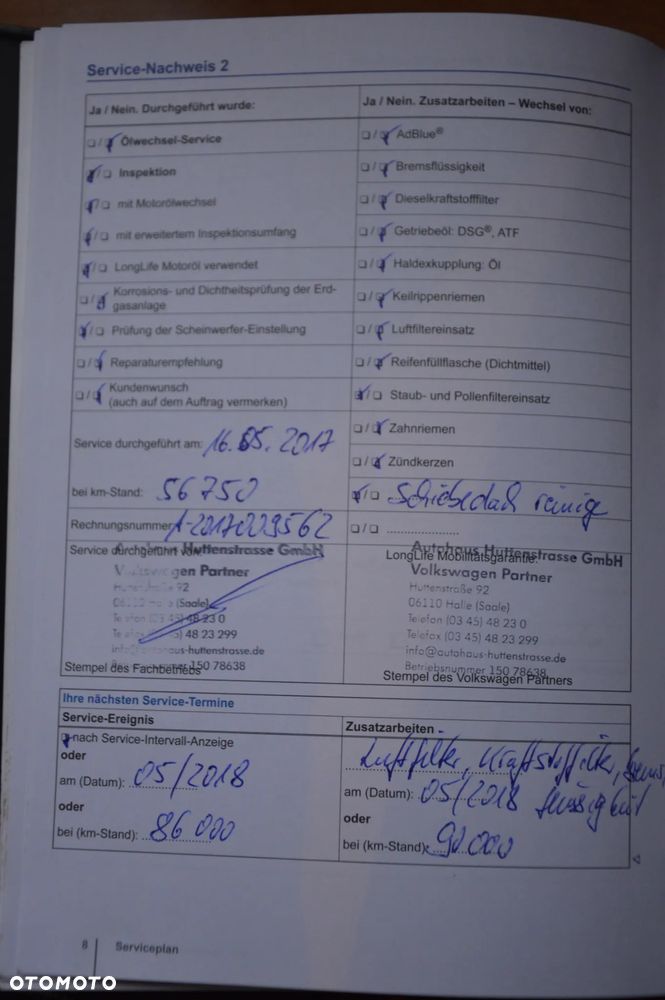 Service-Nachweis 2
Ja / Nein. Durchgeführt wurde:
Ja / Nein. Zusatzarbeiten – Wechsel von:
Ölwechsel-Service
AdBlue®
Inspektion
Bremsflüssigkeit
mit Motorölwechsel
Dieselkraftstofffilter
mit erweitertem Inspektionsumfang
Getriebeöl: DSG®, ATF
LongLife Motoröl verwendet
Haldexkupplung: Öl
Korrosions- und Dichtheitsprüfung der Erd-
gasanlage
Keilrippenriemen
Prüfung der Scheinwerfer-Einstellung
Luftfiltereinsatz
Reparaturempfehlung
Reifenfüllflasche (Dichtmittel)
Kundenwunsch
(auch auf dem Auftrag vermerken)
Staub- und Pollenfiltereinsatz
Zahnriemen
Service durchgeführt am: 16.05.2017
Zündkerzen
bei km-Stand: 56750
Schiebedach reinige
Rechnungsnummer: A-2017009562
Service durchgeführt von:
Autohaus Huttenstrasse GmbH
Volkswagen Partner
Huttenstraße 92
06110 Halle (Saale)
Telefon (03 45) 48 23 0
Telefax (03 45) 48 23 299
info@autohaus-huttenstrasse.de
Betriebsnummer 150 78638
Stempel des Fachbetriebs
LongLife Mobilitätsgarantie:
Autohaus Huttenstrasse GmbH
Volkswagen Partner
Huttenstraße 92
06110 Halle (Saale)
Telefon (03 45) 48 23 0
Telefax (03 45) 48 23 299
info@autohaus-huttenstrasse.de
Betriebsnummer 150 78638
Stempel des Volkswagen Partners
Ihre nächsten Service-Termine
Service-Ereignis
nach Service-Intervall-Anzeige
oder
am (Datum): 05/2018
oder
bei (km-Stand): 86 000
Zusatzarbeiten
Luftfilter, Kraftstofffilter, Brems
am (Datum): 05/2018 flüssigkeit
oder
bei (km-Stand): 90.000
8
Serviceplan
OTOMOTO